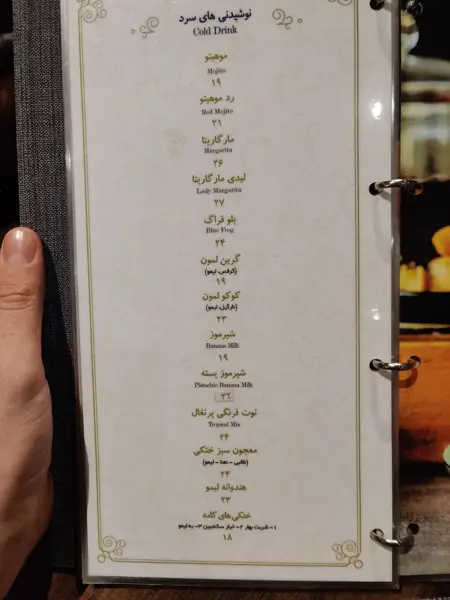 نوشیدنی های سرد
Cold Drink
موهیتو
Mojito
۱۹
رد موهیتو
Red Mojito
۲۱
مارگاریتا
Margarita
۲۶
لیدی مارگاریتا
Lady Margarita
۲۷
بلو فراگ
Blue Frog
۲۴
گرین لمون
(کرفس، لیمو)
۱۹
کوکو لمون
(نارگیل، لیمو)
۲۳
شیرموز
Banana Milk
۱۹
شیرموز پسته
Pistachio Banana Milk
۳۲
توت فرنگی پرتغال
Tropical Mix
۲۴
معجون سبز خنکی
(طالبی - نعنا - لیمو)
۲۴
هندوانه لیمو
۲۳
خنکی‌های کامه
۱- شربت بهار ۲- خیار سکنجبین ۳- به‌لیمو
۱۸